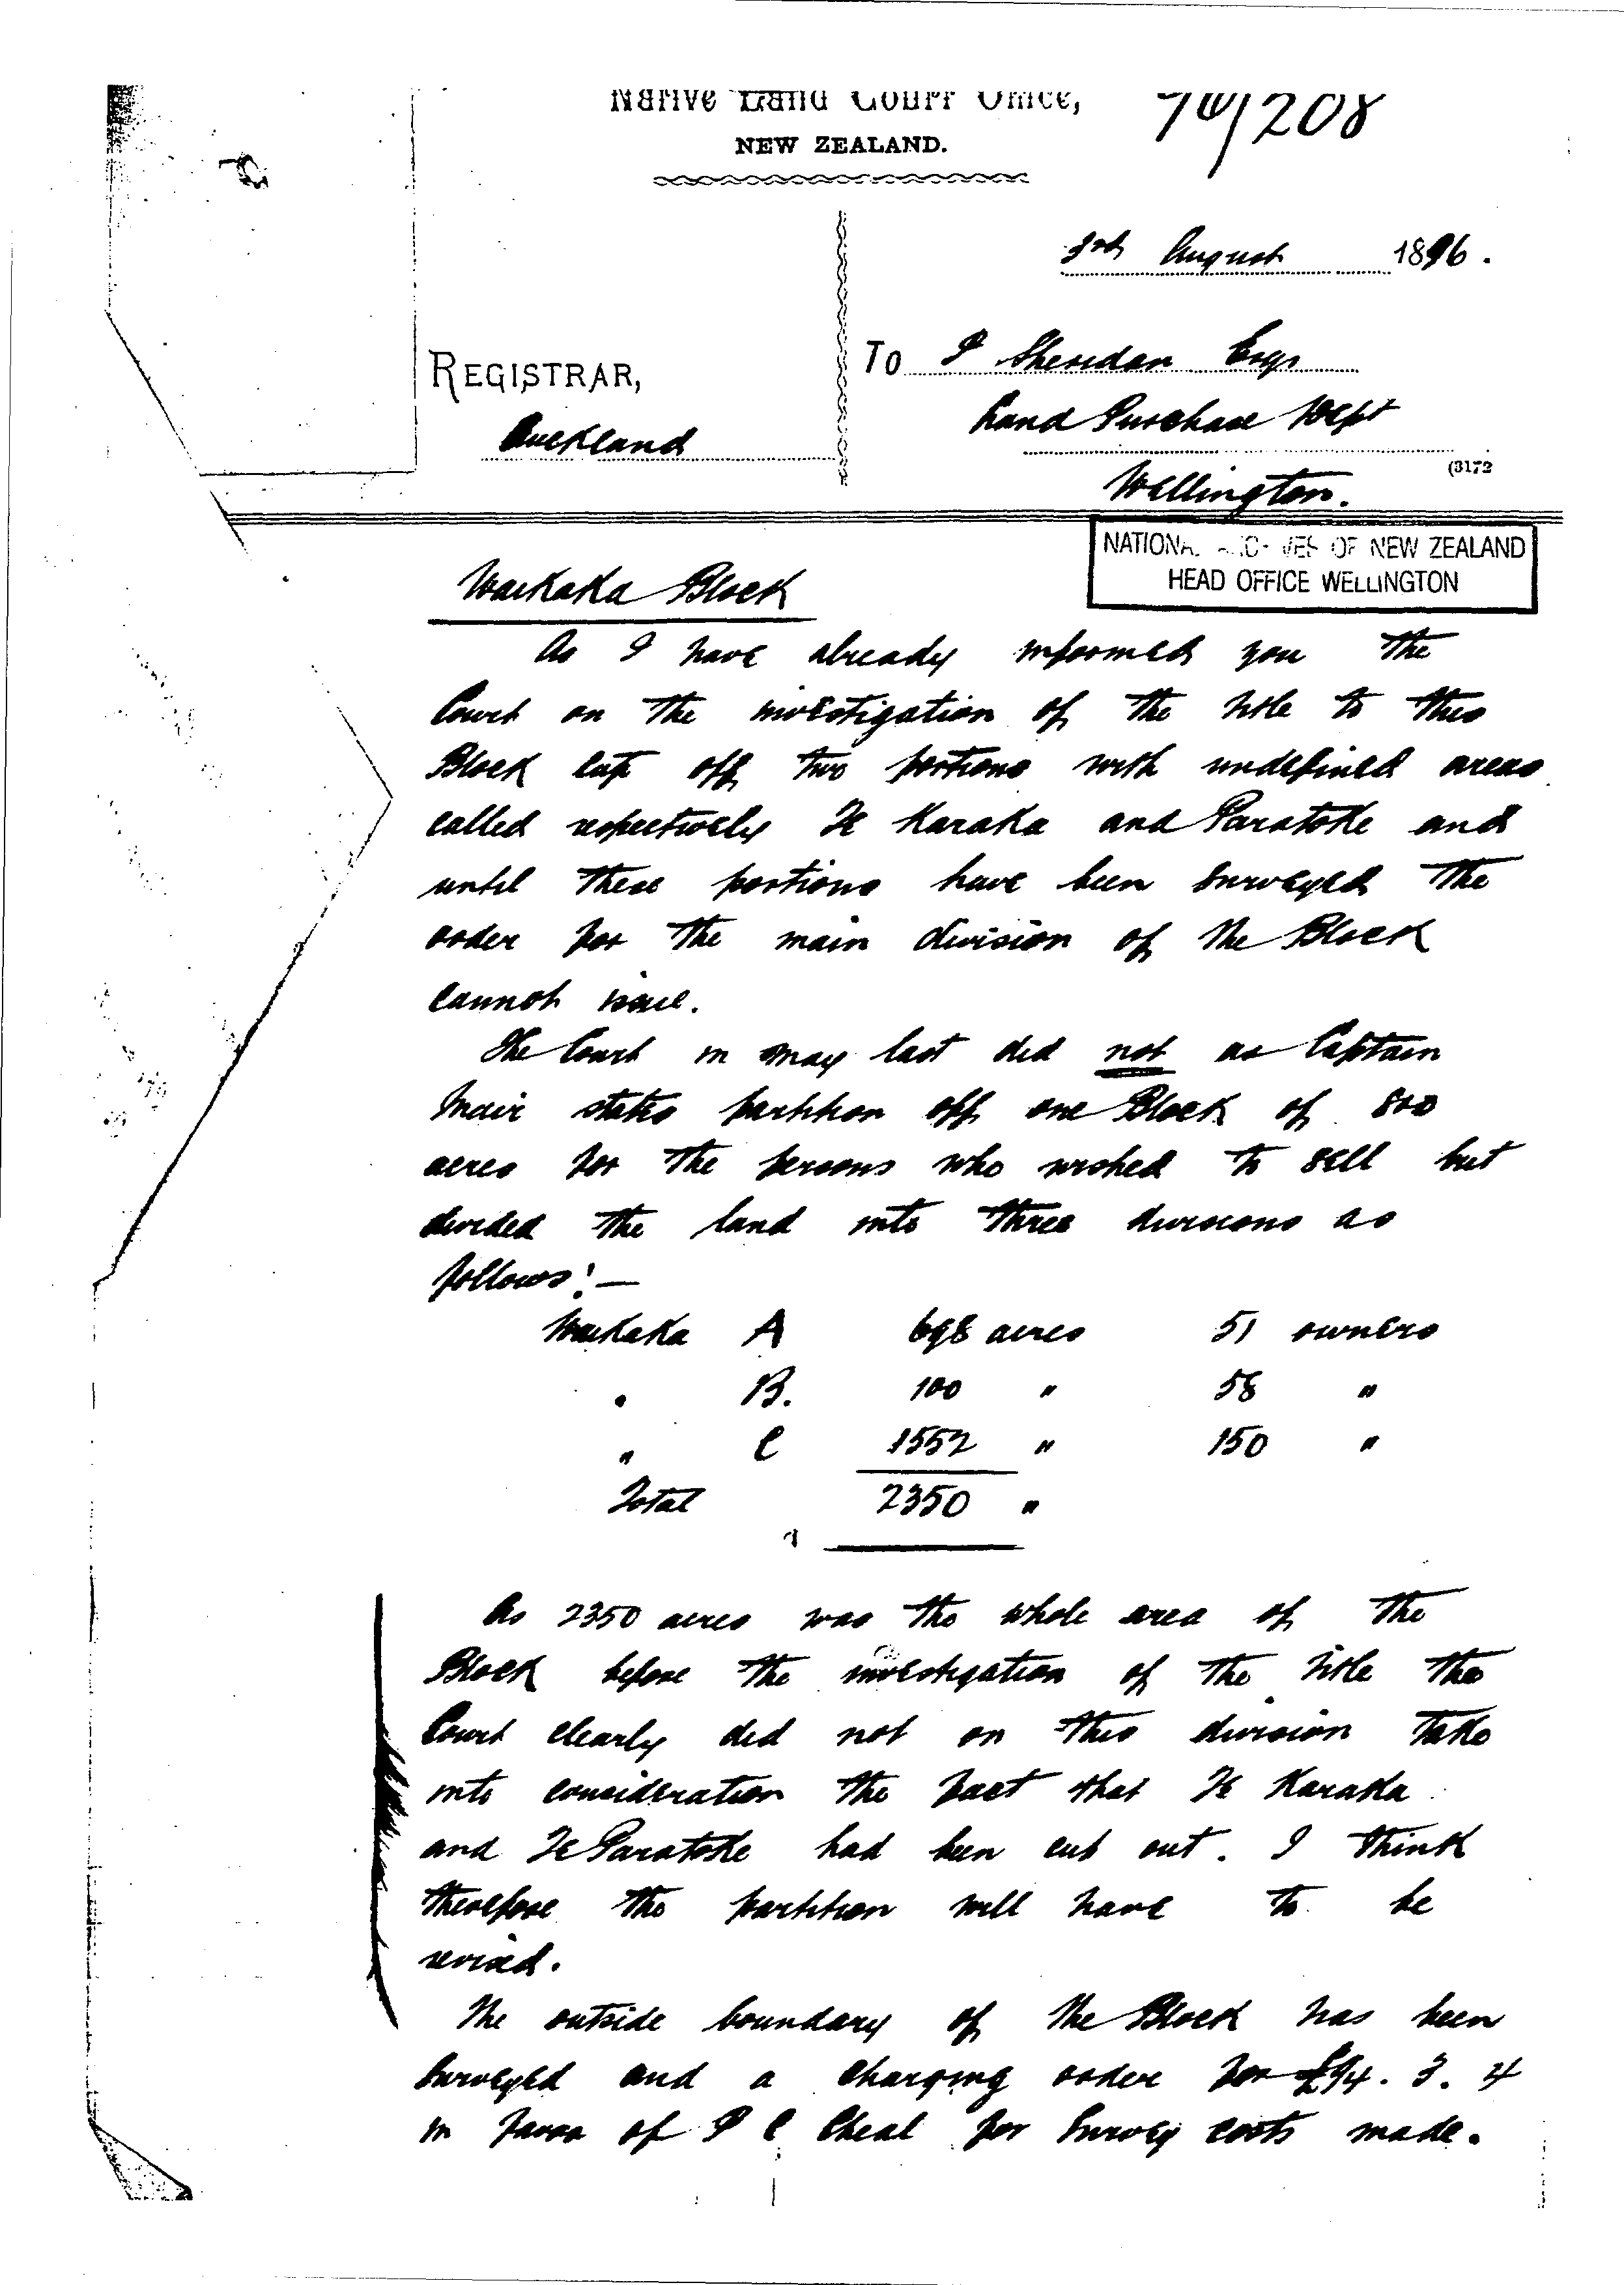 Native Land Court Office,
NEW ZEALAND.
3rd August 1896.
REGISTRAR,
Auckland
To P Sheridan Esqr
Land Purchase Dept
Wellington.
(3172
NATIONAL ARCHIVES OF NEW ZEALAND
HEAD OFFICE WELLINGTON
Waikaka Block
As I have already informed you the
Court on the investigation of the title to this
Block cut off two portions with undefined areas
called respectively Te Karaka and Paratoke and
until these portions have been surveyed the
order for the main division of the Block
cannot issue.
The Court in May last did not as Captain
Mair states partition off one Block of 800
acres for the persons who wished to sell but
divided the land into three divisions as
follows:—
Waikaka A 698 acres 51 owners
" B. 100 " 58 "
" C 1552 " 150 "
Total 2350 "
As 2350 acres was the whole area of the
Block before the investigation of the title the
Court clearly did not on this division take
into consideration the fact that Te Karaka
and Te Paratoke had been cut out. I think
therefore the partition will have to be
revised.
The outside boundary of the Block has been
surveyed and a charging order for £94. 3. 4
in favor of P C Cheal for Survey costs made.